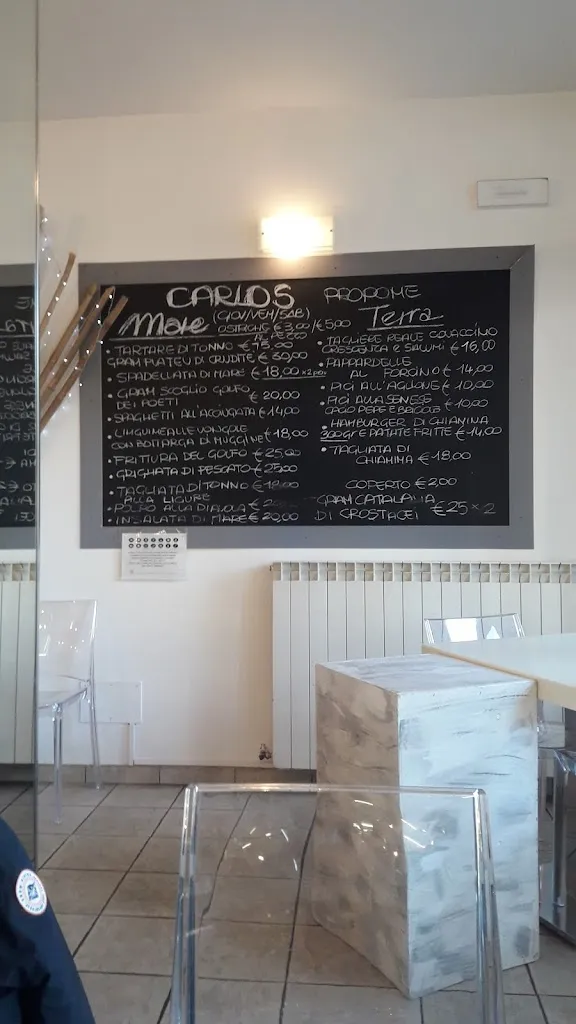 CARLOS PROPONE
Mare (GIOV/VEN/SAB)
OSTRICHE € 3,00/€ 5,00
AL PEZZO
• TARTARE DI TONNO €
GRAN PLATEU DI CRUDITE € 30,00
• SPADELLATA DI MARE € 18,00 x 2
• GRAM SCOGLIO GOLFO
DEI POETI € 20,00
• SPAGHETTI ALL'ACCIUGATA € 14,00
• LINGUINE ALLE VONGOLE
CON BOTTARGA DI MUGGINE € 18,00
• FRITTURA DEL GOLFO € 25,00
• GRIGLIATA DI PESCATO € 25,00
• TAGLIATA DI TONNO €
ALLA LIGURE
• POLPO ALLA DIAVOLA €
• INSALATA DI MARE € 20,00
Terra
• TAGLIERE REALE COVACCINO
CRESCENTA E SALUMI € 16,00
• PAPPARDELLE
AL PORCINO € 14,00
• PICI ALL'AGLIONE € 10,00
• PICI ALLA SENESE
CACIO PEPE E BRICIOLE € 10,00
• HAMBURGER DI CHIANINA
300gr E PATATE FRITTE € 14,00
• TAGLIATA DI
CHIANINA € 18,00
COPERTO € 2,00
GRAM CATALANA
DI CROSTACEI € 25 x 2